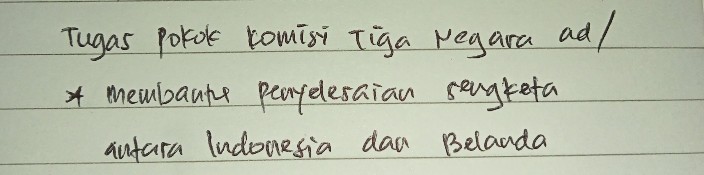 Tugas Pokok Komisi Tiga Negara ad/
* membantu penyelesaian sengketa
antara Indonesia dan Belanda